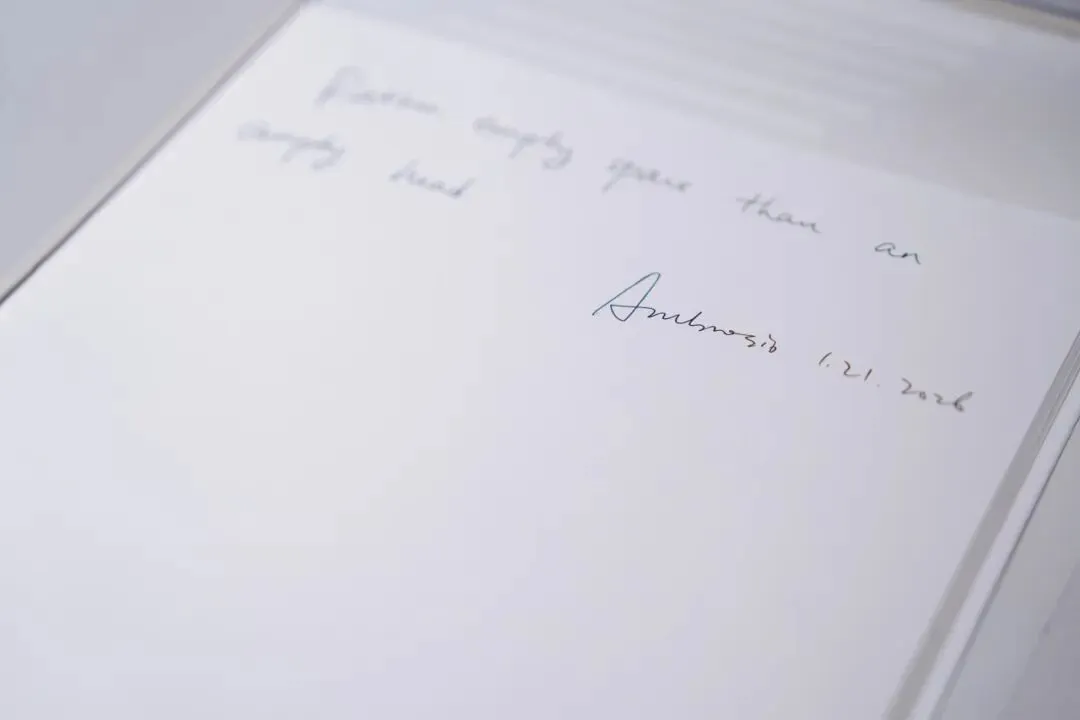 empty space than an
empty head
Ambrosio 1.21.2026